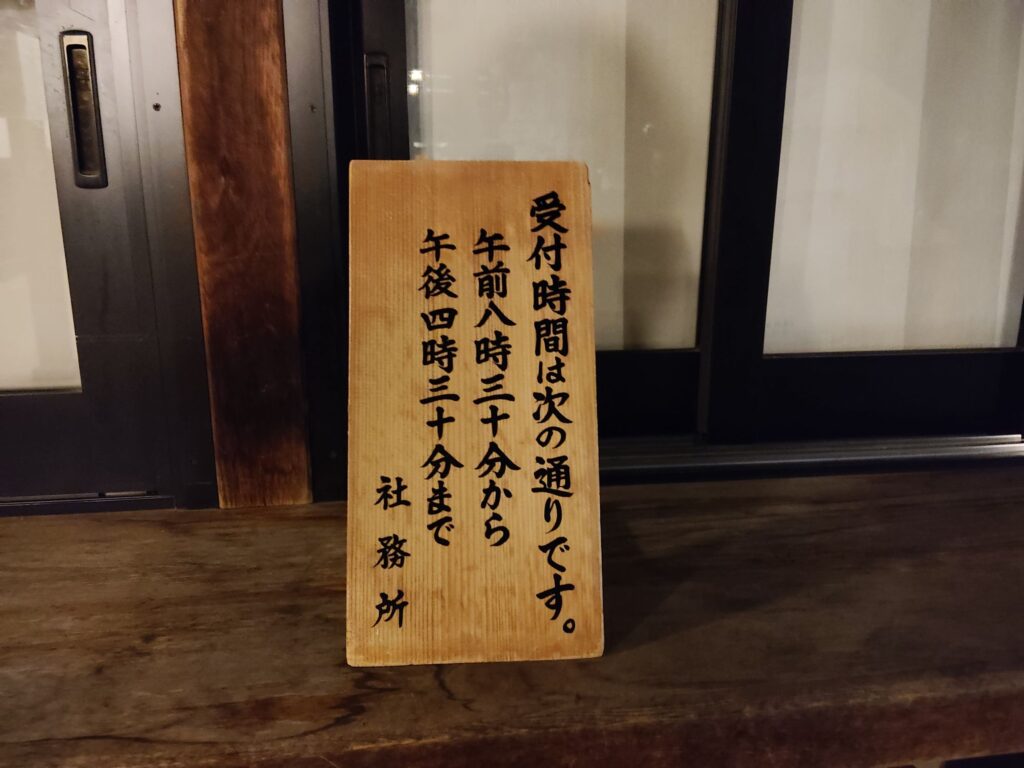 受付時間は次の通りです。
午前八時三十分から
午後四時三十分まで
社務所